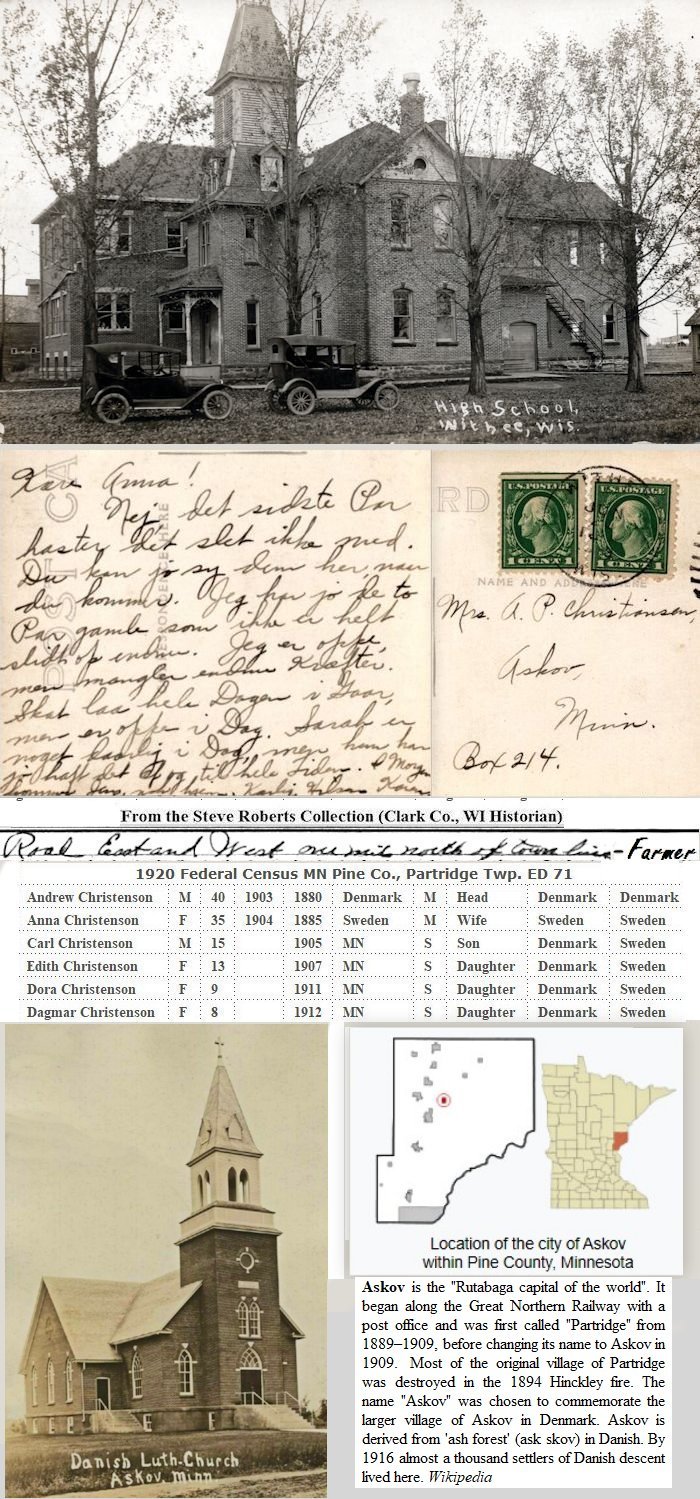 High School,
Withee, Wis.
POST CA
RD
CORRESPONDENCE HERE
NAME AND ADDRESS HERE
U.S. POSTAGE
U.S. POSTAGE
1 CENT 1
1 CENT 1
Kære Anna!
Nej, det sidste Par
haster det slet ikke med.
Du kan jo sy dem her, naar
du kommer. Jeg har jo de to
Par gamle som ikke er helt
slidt op endnu. Jeg er oppe,
men mangler endnu Kræfter.
Skat laa hele Dagen i Gaar,
men er oppe i Dag. Sarah er
noget daarlig i Dag, men hun har
jo haft det af og til hele Tiden. I Morgen
kommer Jens Hilsen Karen
Mrs. A. P. Christiansen,
Askov,
Minn.
Box 214.
From the Steve Roberts Collection (Clark Co., WI Historian)
Road East and West one mile north of town line - Farmer
1920 Federal Census MN Pine Co., Partridge Twp. ED 71
Andrew Christenson M 40 1903 1880 Denmark M Head Denmark Denmark
Anna Christenson F 35 1904 1885 Sweden M Wife Sweden Sweden
Carl Christenson M 15 1905 MN S Son Denmark Sweden
Edith Christenson F 13 1907 MN S Daughter Denmark Sweden
Dora Christenson F 9 1911 MN S Daughter Denmark Sweden
Dagmar Christenson F 8 1912 MN S Daughter Denmark Sweden
Danish Luth. Church
Askov, Minn
Location of the city of Askov
within Pine County, Minnesota
Askov is the "Rutabaga capital of the world". It
began along the Great Northern Railway with a
post office and was first called "Partridge" from
1889–1909, before changing its name to Askov in
1909. Most of the original village of Partridge
was destroyed in the 1894 Hinckley fire. The
name "Askov" was chosen to commemorate the
larger village of Askov in Denmark. Askov is
derived from 'ash forest' (ask skov) in Danish. By
1916 almost a thousand settlers of Danish descent
lived here. Wikipedia